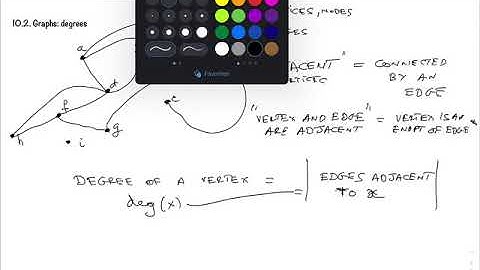 10.2. Graphs: degrees
NODES
a
"
= CONNECTED
BY AN
EDGE
d
f
c
g
h
i
"VERTEX AND EDGE
ARE ADJACENT"
= VERTEX IS AN
ENDPT OF EDGE
DEGREE OF A VERTEX =
deg(x)
= | EDGES ADJACENT
TO x |
Favorites